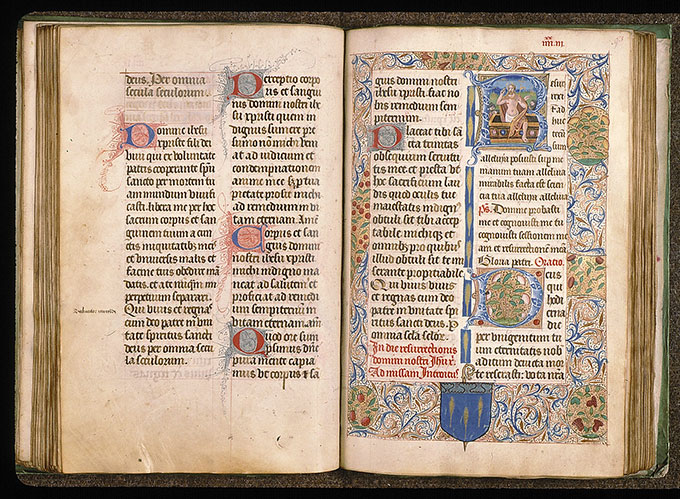 deus. Per omnia
secula seculorum.
Domine ihesu
xpriste fili dei
vivi qui ex voluntate
patris cooperante spū
sancto per mortem tu
am mundum vivifi
casti. libera me per hoc
sacrum corpus et san
guinem tuum a cun
ctis iniquitatibus meis
et universis malis et
fac me tuis obedire mā
datis. et a te nūq̄m in
perpetuum separari.
Qui vivis et regnas
cum deo patre in uni
tate spiritus sancti
deus per omnia secu
la seculorum.
Perceptio corpo
ris et sangui
nis domini nostri ihesu
xpristi quem in
dignus sumere pre
sumo non michi veni
at ad iudicium et
condempnationem
anime mee sed tua
pietate prosit michi
ad remedium vi
tam eternam. Amē
Corpus et san
guis domini
nostri ihesu xpristi
michi indigno ma
neat ad salutem et
proficiat ad remedi
um sempiternū in
vitam eternam. amē
Quod ore sum
psimus dn̄e
pura mente capia
mus de corpore et sā
guis domini nostri
ihesu xpisti. fiat no
bis remedium sem
piternum.
Placeat tibi sā
cta trinitas
obsequium servitu
tis mee et presta ut
hoc sacrificium lau
dis quod oculis tue
maiestatis indign9
obtuli sit tibi accep
tabile michique et
omnibus pro quibus
illud obtuli sit te mi
serante propitiabile
Qui vivis vivis
et regnas cum deo
patre in unitate spi
ritus sancti deus. P
omnia scla sclor.
In die resurrectionis
domini nostri Jhūx
Ad missam Introitus
iiii. iii
Resur
rexi
et ad
huc
tecū
sum
alleluya posuisti sup me
manum tuam alleluya
mirabilis facta est sciē
tia tua alleluya alleluya
Ps. Domine probasti
me et cognovisti me tu
cognovisti sessionem mē
am et resurrectionē meā
Gloria patri. Oratio.
Deus
qui
hodi
erna
die
per unigenitum tu
um eternitatis nob
aditum devicta mor
te reserasti: vota nrā